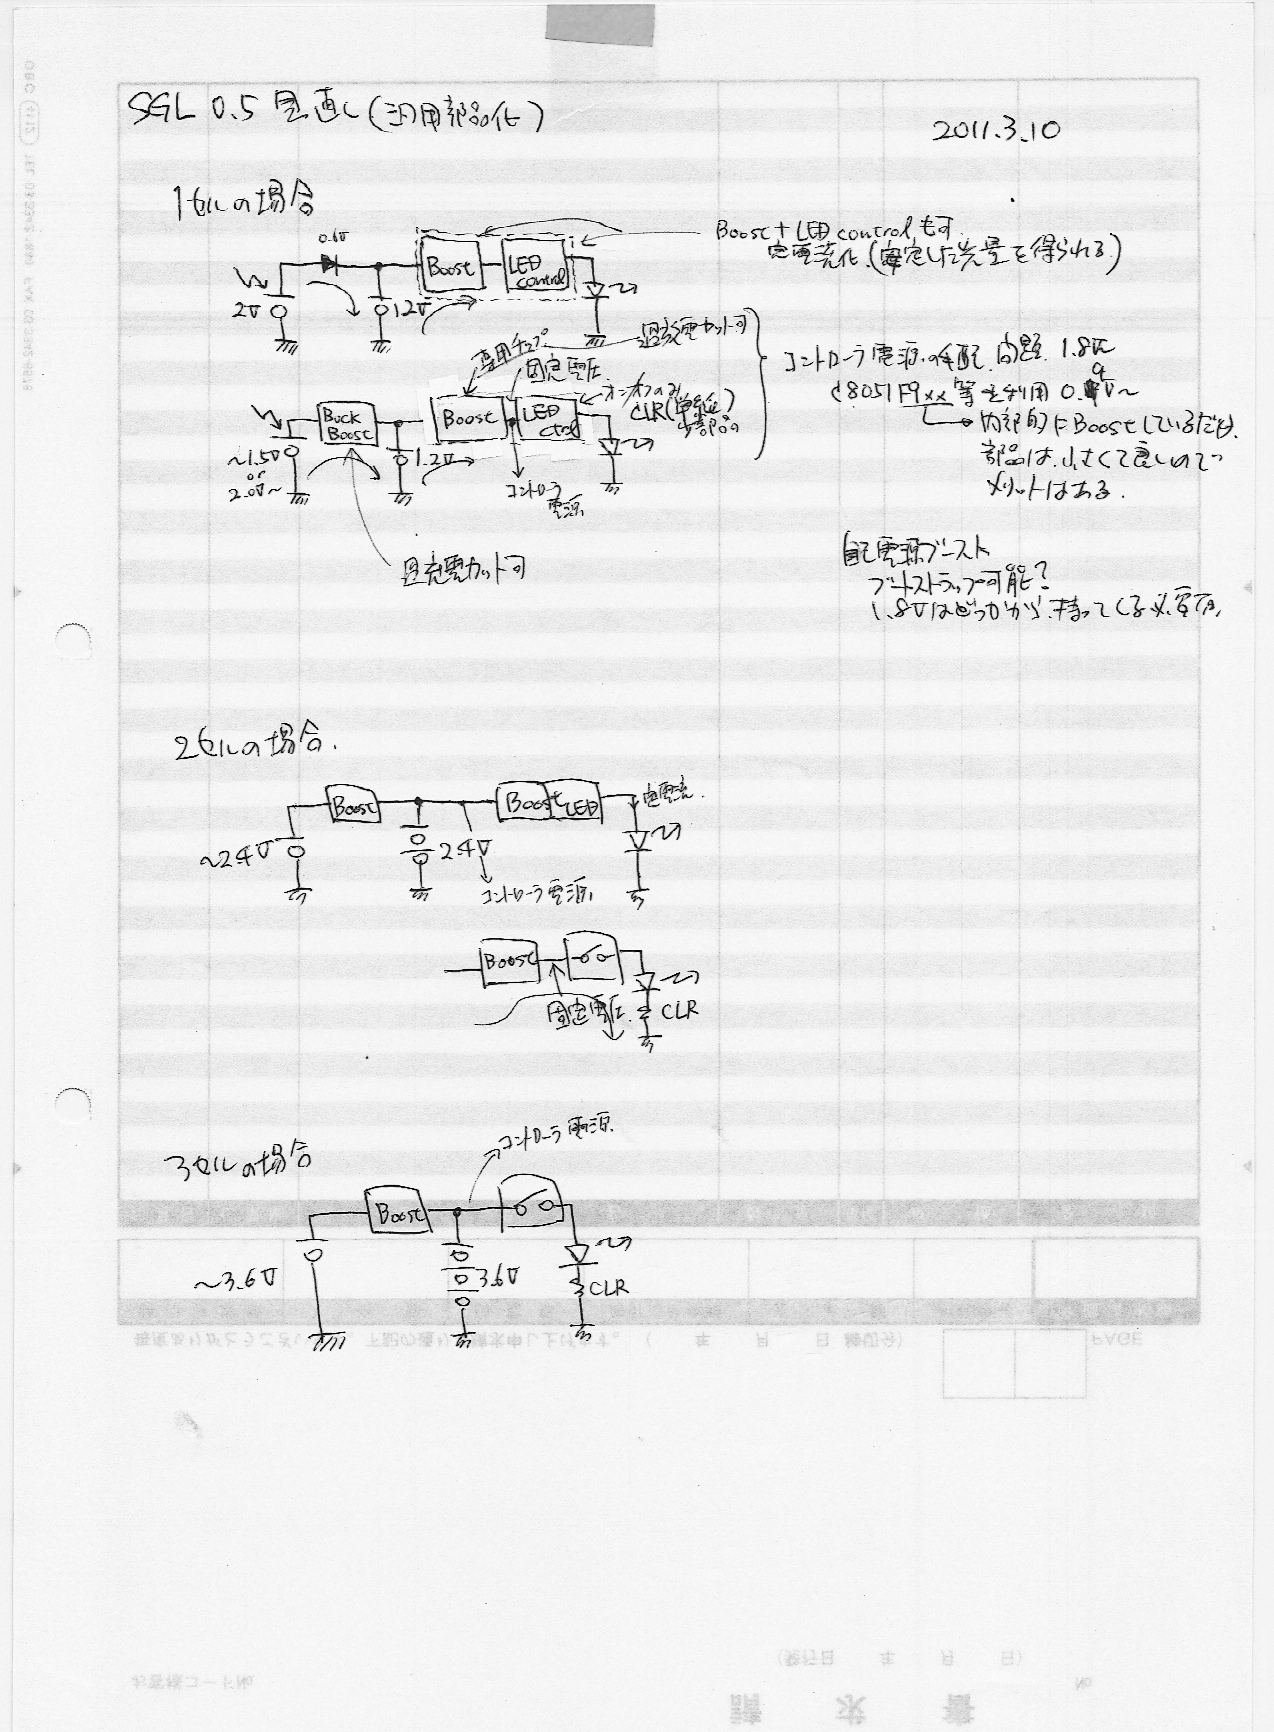 SGL 0.5 見直し(汎用部品化)
2011.3.10
1セルの場合
0.6V
Boost
LED control
2V
1.2V
Boost + LED control も可
定電流化(安定した光量を得られる)
専用チップ
過放電カット可
固定電圧
オンオフのみ
CLR(単純
Buck Boost
Boost
LED ctrl
~1.5V
or
2.0V~
1.2V
コントローラ
電源
過充電カット可
コントローラ電源の 問題. 1.8V~
C8051F9xx等を利用 0.9V~
内部的にBoostしているだけ.
部品は小さくて良いので
メリットはある.
自己電源ブースト
ブートストラップ可能?
1.8Vはどっかから持ってくる必要有.
2セルの場合.
Boost
Boost LED
定電流.
~2.4V
2.4V
コントローラ電源.
Boost
固定電圧.
CLR
3セルの場合
コントローラ電源.
Boost
~3.6V
3.6V
CLR
PAGE
(発行日 年 月 日)
お客様コードNo.
No.
請求書